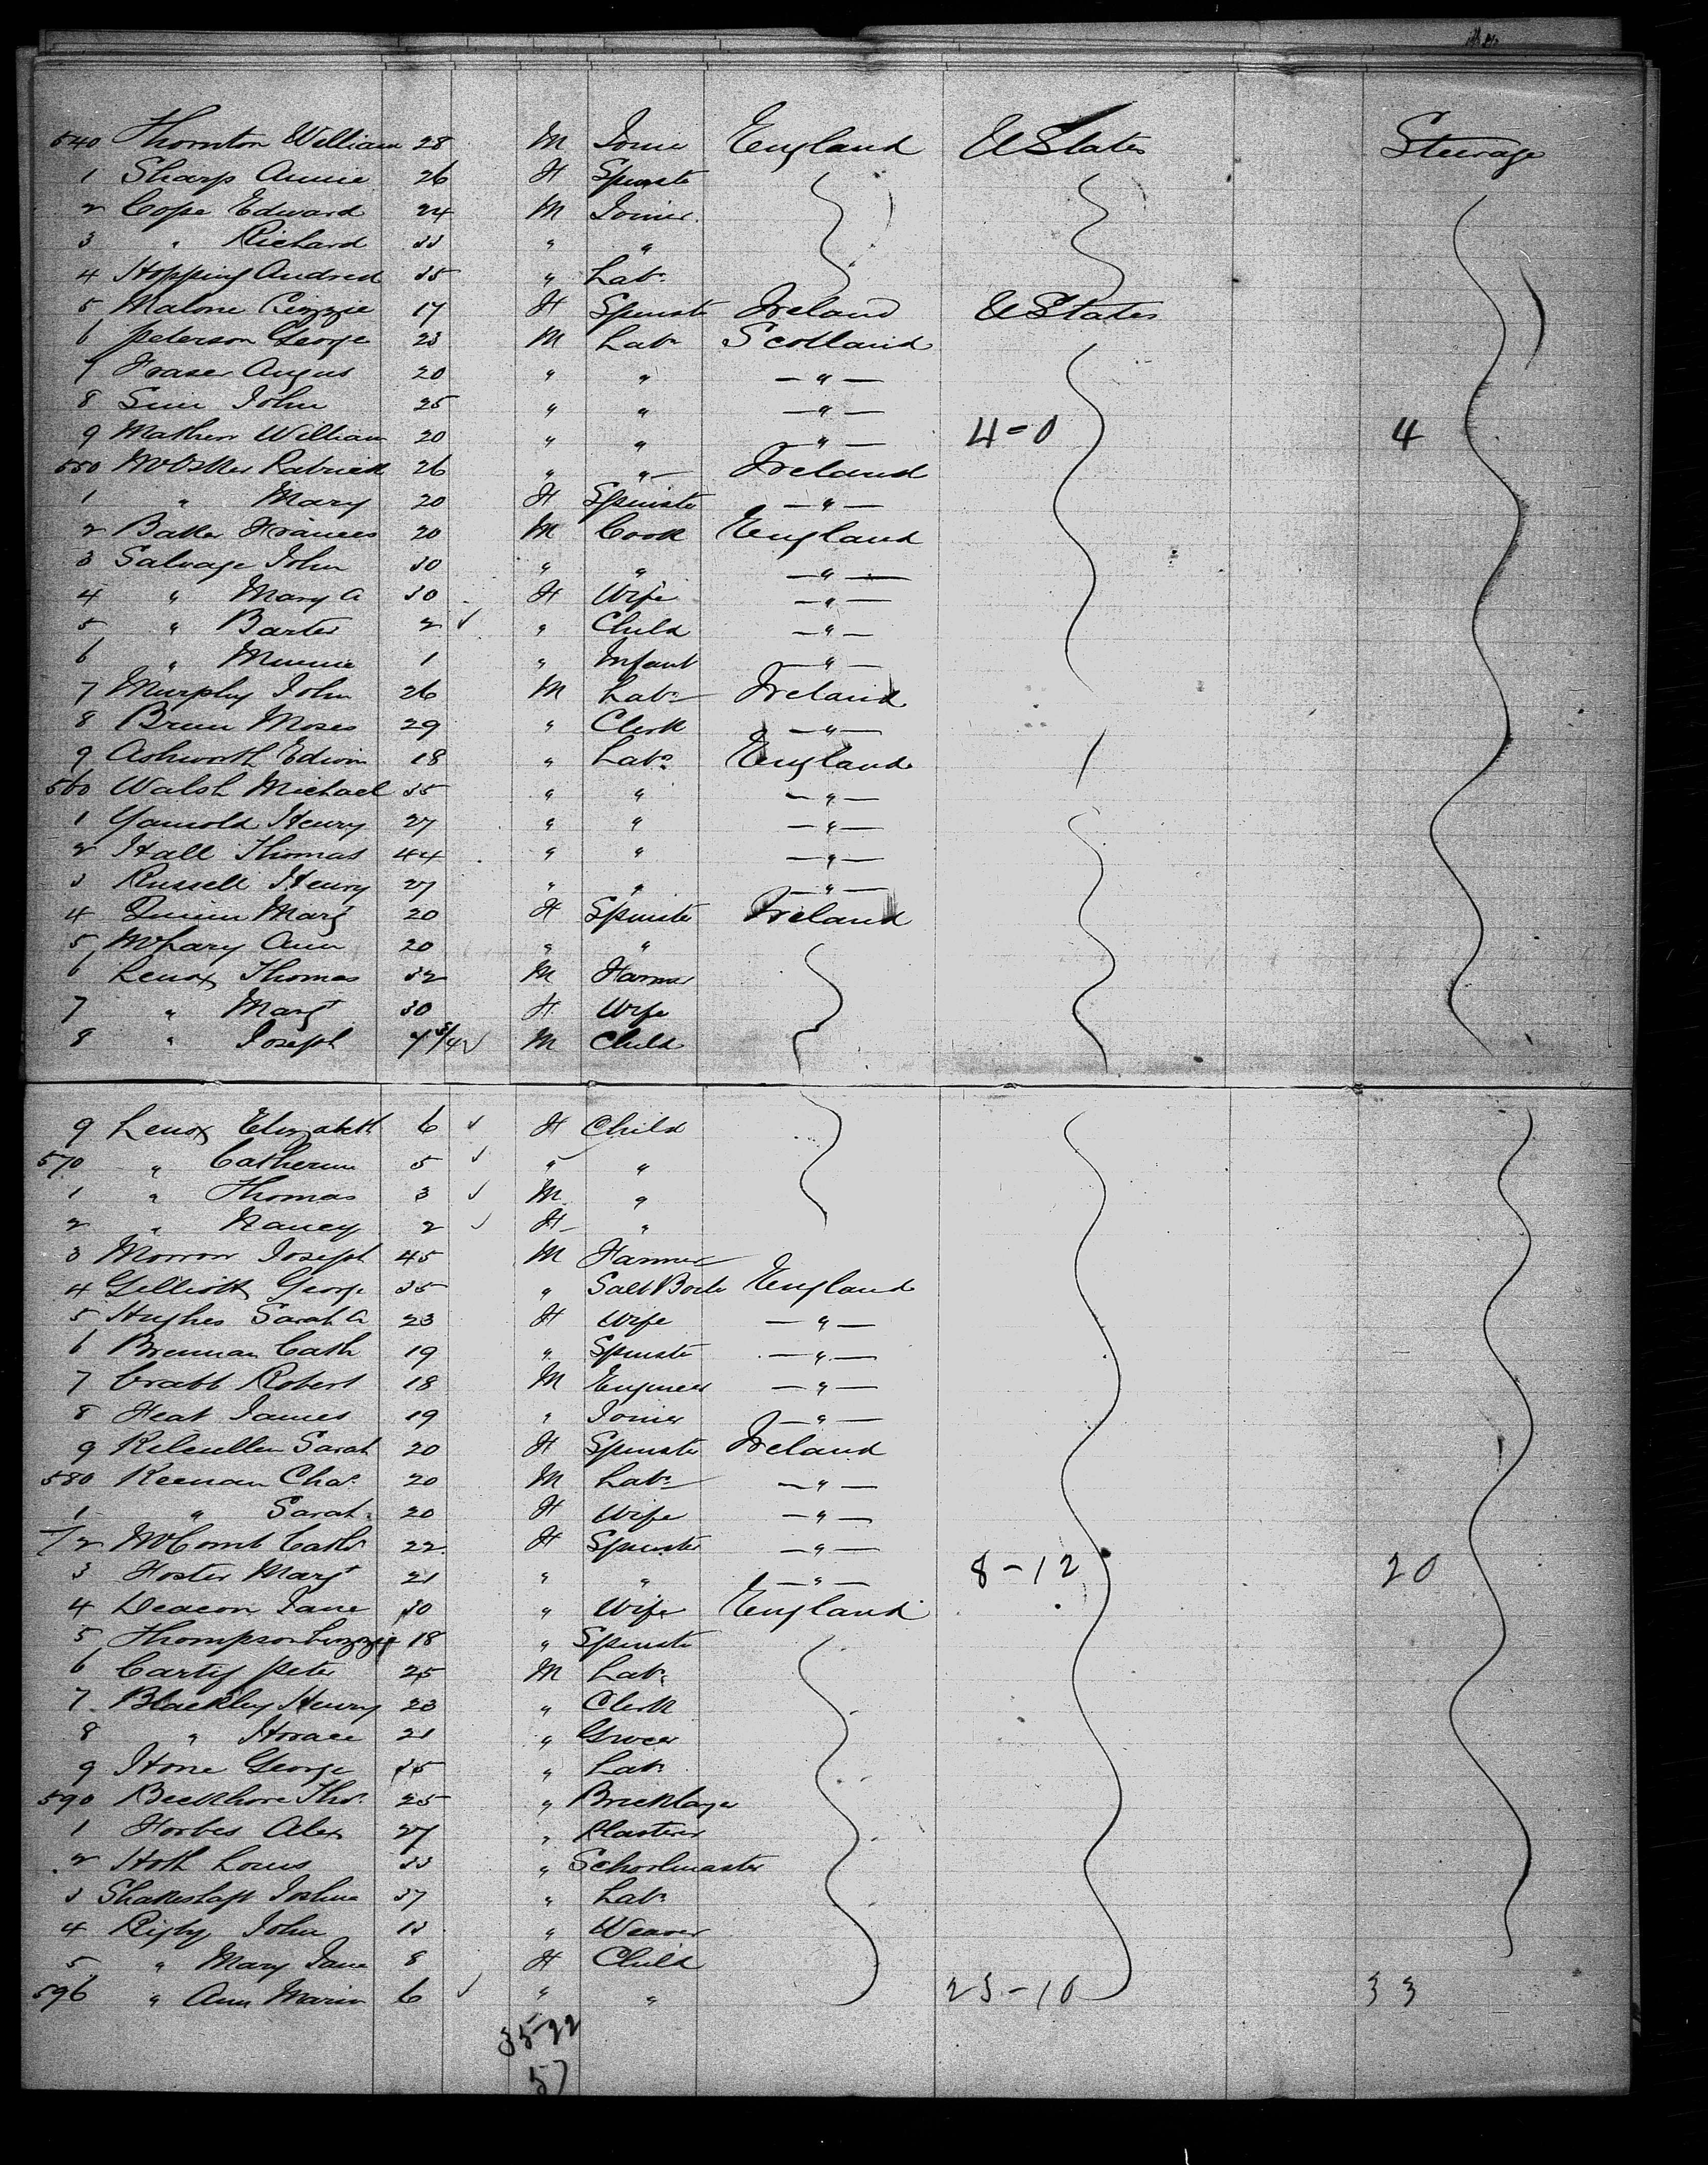 540 Thornton William 28 M Joiner England U States Steerage
1 Sharp Annie 26 F Spinster
2 Cope Edward 24 M Joiner
3 " Richard 33 " "
4 Hopping Andrew 35 " Labr
5 Malone Lizzie 17 F Spinst Ireland U States
6 Peterson George 23 M Labr Scotland
7 Fraser Angus 20 " " — " —
8 Sim John 25 " " — " —
9 Mathew William 20 " " — " — 4-0 4
550 Patrick 26 " " Ireland
1 " Mary 20 F Spinster — " —
2 Baker Frances 20 M Cook England
3 Salvage John 30 " " — " —
4 " Mary A 30 F Wife — " —
5 " Baxter 2 ✓ " Child — " —
6 " Minnie 1 " Infant — " —
7 Murphy John 26 M Labr Ireland
8 Moses 29 " Clerk — " —
9 Ashworth Edwin 18 " Labr England
560 Walsh Michael 35 " " — " —
1 Henry 27 " " — " —
2 Hall Thomas 44 " " — " —
3 Russell Henry 27 " " — " —
4 Quinn Margt 20 F Spinster Ireland
5 Ann 20 " "
6 Lenox Thomas 32 M Farmer
7 " Margt 30 F Wife
8 " Joseph 7 ✓ M Child
9 Lenox Elizabeth 6 ✓ F Child
570 " Catherine 5 ✓ " "
1 " Thomas 3 ✓ M "
2 " Nancy 2 ✓ F "
3 Morrow Joseph 45 M Farmer
4 George 35 " Salt England
5 Hughes Sarah A 23 F Wife — " —
6 Brennan Cath 19 " Spinste — " —
7 Crabb Robert 18 M Engineer — " —
8 Heat James 19 " Joiner — " —
9 Kilcullen Sarah 20 F Spinste Ireland
580 Keenan Chas 20 M Labr — " —
1 " Sarah 20 F Wife — " —
2 McComb Cathr 22 F Spinster — " —
3 Foster Margt 21 " " — " — 8-12 20
4 Deacon Jane 30 " Wife England
5 Thompson Lizzie 18 " Spinste
6 Carty Peter 25 M Labr
7 Blackley Henry 23 " Clerk
8 " Horace 21 " Grocer
9 Hone George 35 " Labr
590 Thos 25 " Bricklayer
1 Forbes Alex 27 " Plasterer
2 Hoth Louis 33 " Schoolmaster
3 Shakeshaft Joshua 37 " Labr
4 Rigby John 13 " Weaver
5 " Mary Jane 8 F Child
596 " Ann Maria 6 ✓ " " 23-10 33
35-22
57